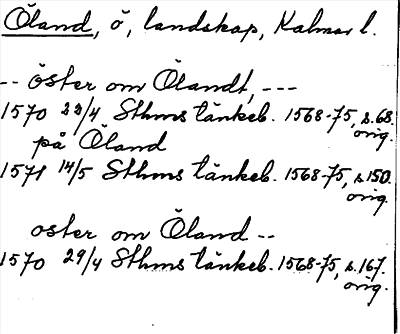 Öland, ö, landskap, Kalmar l.
-- öster om Ölandt, ---
1570 23/4 Sthms tänkeb. 1568-75, s.68.
orig.
på Öland
1571 14/5 Sthms tänkeb. 1568-75, s.150.
orig.
oster om Öland --
1570 29/4 Sthms tänkeb. 1568-75, s.167.
orig.